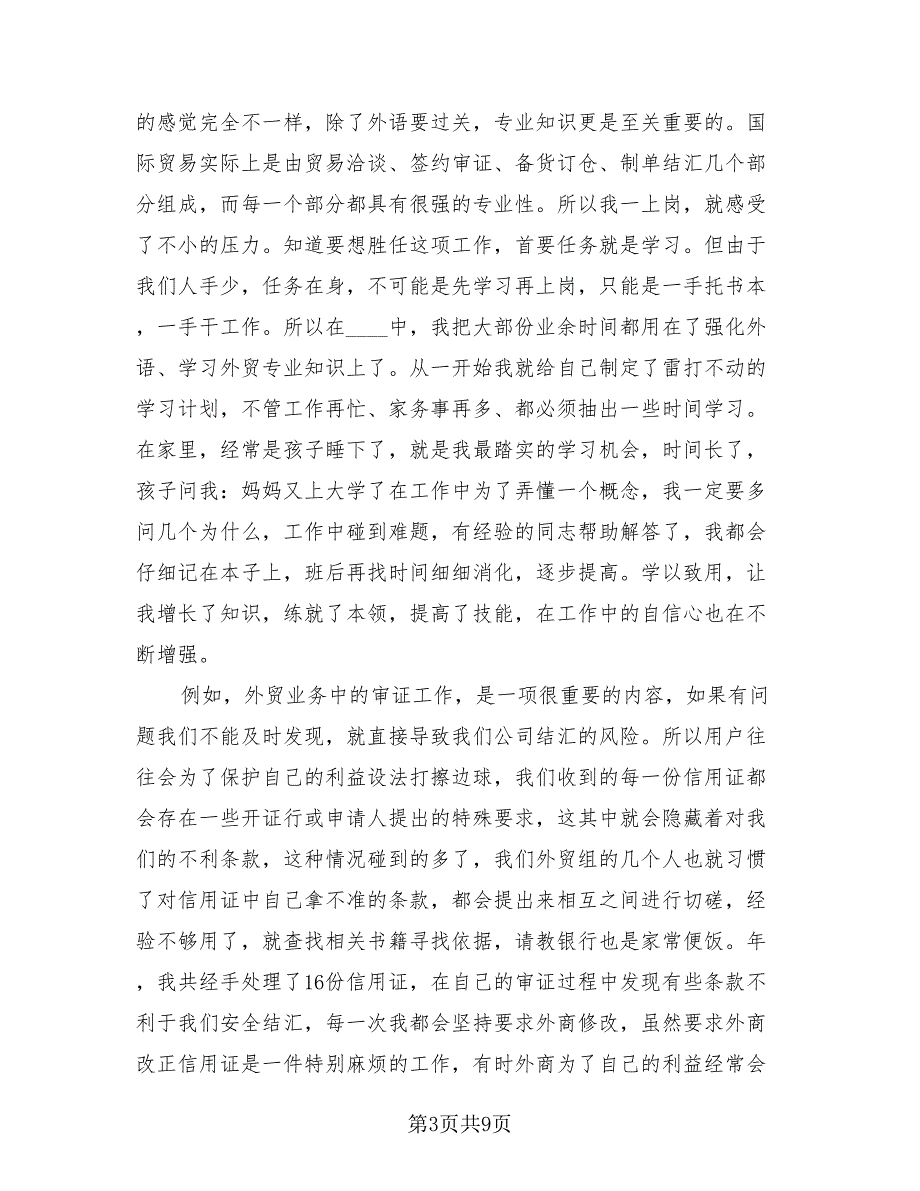 的感觉完全不一样，除了外语要过关，专业知识更是至关重要的。国
际贸易实际上是由贸易洽谈、签约审证、备货订仓、制单结汇几个部
分组成，而每一个部分都具有很强的专业性。所以我一上岗，就感受
了不小的压力。知道要想胜任这项工作，首要任务就是学习。但由于
我们人手少，任务在身，不可能是先学习再上岗，只能是一手托书本
，一手干工作。所以在____中，我把大部份业余时间都用在了强化外
语、学习外贸专业知识上了。从一开始我就给自己制定了雷打不动的
学习计划，不管工作再忙、家务事再多、都必须抽出一些时间学习。
在家里，经常是孩子睡下了，就是我最踏实的学习机会，时间长了，
孩子问我：妈妈又上大学了在工作中为了弄懂一个概念，我一定要多
问几个为什么，工作中碰到难题，有经验的同志帮助解答了，我都会
仔细记在本子上，班后再找时间细细消化，逐步提高。学以致用，让
我增长了知识，练就了本领，提高了技能，在工作中的自信心也在不
断增强。
例如，外贸业务中的审证工作，是一项很重要的内容，如果有问
题我们不能及时发现，就直接导致我们公司结汇的风险。所以用户往
往会为了保护自己的利益设法打擦边球，我们收到的每一份信用证都
会存在一些开证行或申请人提出的特殊要求，这其中就会隐藏着对我
们的不利条款，这种情况碰到的多了，我们外贸组的几个人也就习惯
了对信用证中自己拿不准的条款，都会提出来相互之间进行切磋，经
验不够用了，就查找相关书籍寻找依据，请教银行也是家常便饭。年
，我共经手处理了16份信用证，在自己的审证过程中发现有些条款不
利于我们安全结汇，每一次我都会坚持要求外商修改，虽然要求外商
改正信用证是一件特别麻烦的工作，有时外商为了自己的利益经常会
第3页共9页